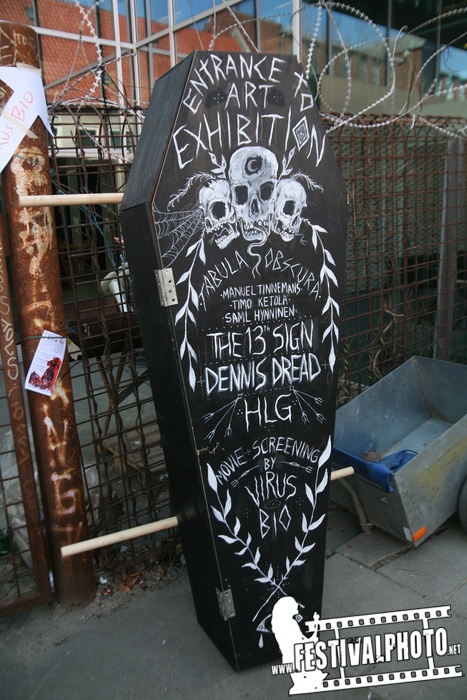 ENTRANCE TO
ART
EXHIBITION
TABULA OBSCURA
·MANUEL TINNEMANS·
·TIMO KETOLA·
SAMI HYNNINEN·
THE 13TH SIGN
DENNIS DREAD
HLG
MOVIE SCREENING
BY
VIRUS
BIO
BIO
WWW.FESTIVALPHOTO.NET